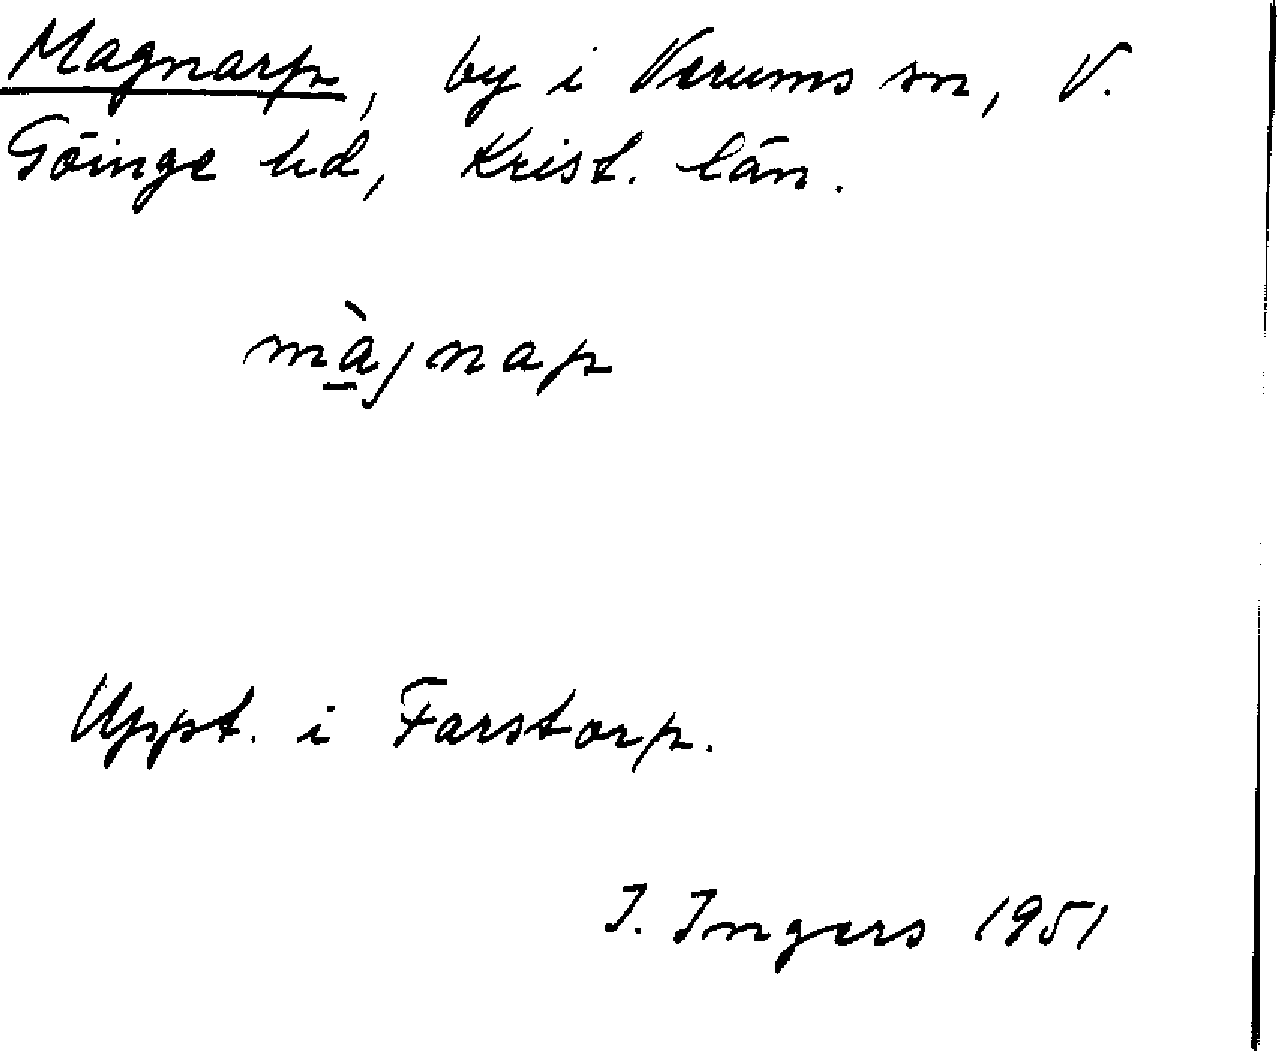 Magnarp, by i Verums sn, V.
Göinge hd, Krist. län.
mà̱jnap
Uppt. i Farstorp.
I. Ingers 1951